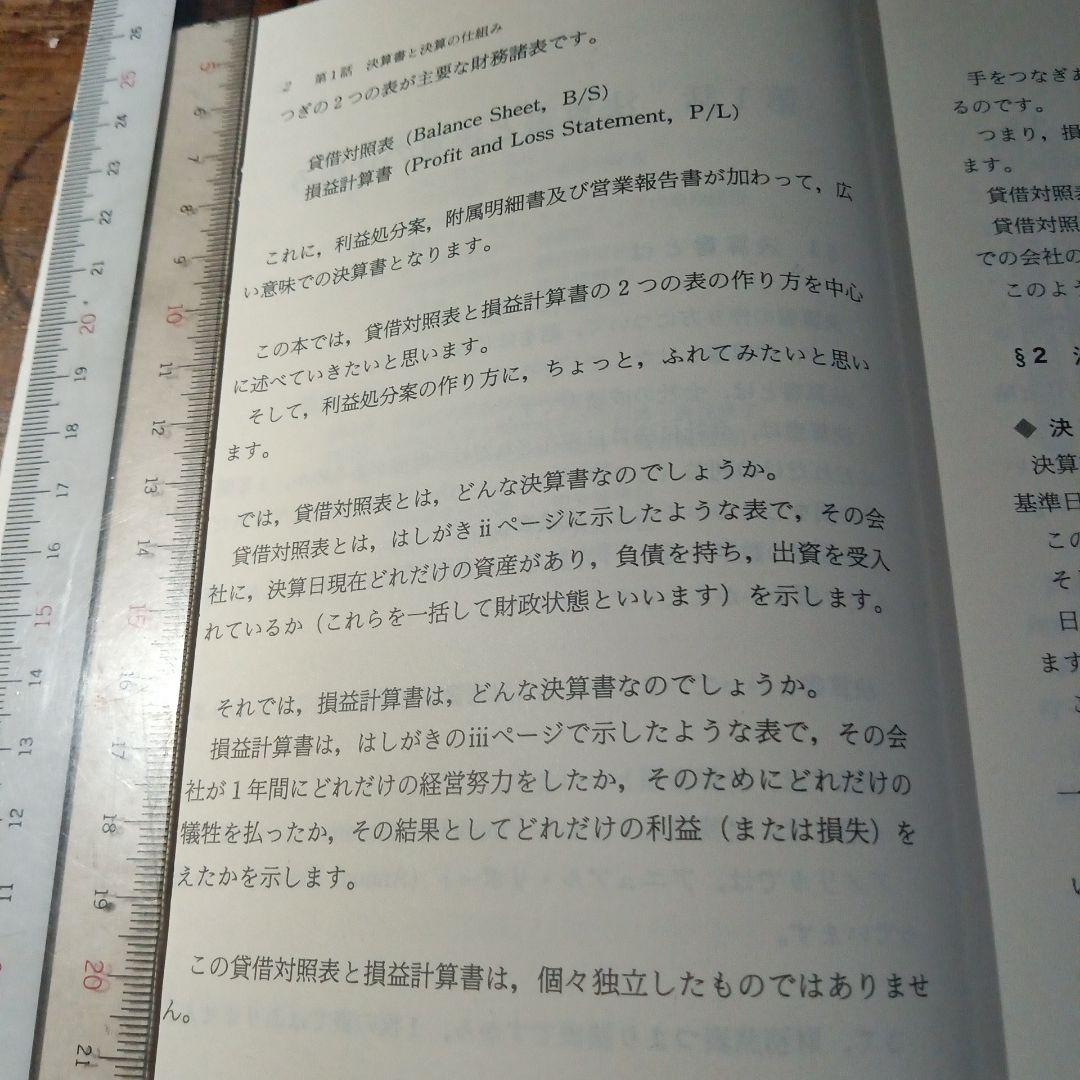 2 第1話 決算書と決算の仕組み
つぎの2つの表が主要な財務諸表です。
貸借対照表（Balance Sheet，B/S）
損益計算書（Profit and Loss Statement，P/L）
これに，利益処分案，附属明細書及び営業報告書が加わって，広
い意味での決算書となります。
この本では，貸借対照表と損益計算書の2つの表の作り方を中心
に述べていきたいと思います。
そして，利益処分案の作り方に，ちょっと，ふれてみたいと思い
ます。
では，貸借対照表とは，どんな決算書なのでしょうか。
貸借対照表とは，はしがきⅱページに示したような表で，その会
社に，決算日現在どれだけの資産があり，負債を持ち，出資を受入
れているか（これらを一括して財政状態といいます）を示します。
それでは，損益計算書は，どんな決算書なのでしょうか。
損益計算書は，はしがきのⅲページで示したような表で，その会
社が1年間にどれだけの経営努力をしたか，そのためにどれだけの
犠牲を払ったか，その結果としてどれだけの利益（または損失）を
えたかを示します。
この貸借対照表と損益計算書は，個々独立したものではありませ
ん。
手をつなぎあ
るのです。
つまり，損
ます。
貸借対照表
貸借対照
での会社の
このよう
§2
◆ 決
決算
基準日
この
そ
日
ます
こ
い
26
25
24
23
22
21
20
19
18
17
16
15
14
13
12
11
5
6
7
8
9
10
11
12
13
14
15
16
17
18
19
20
21